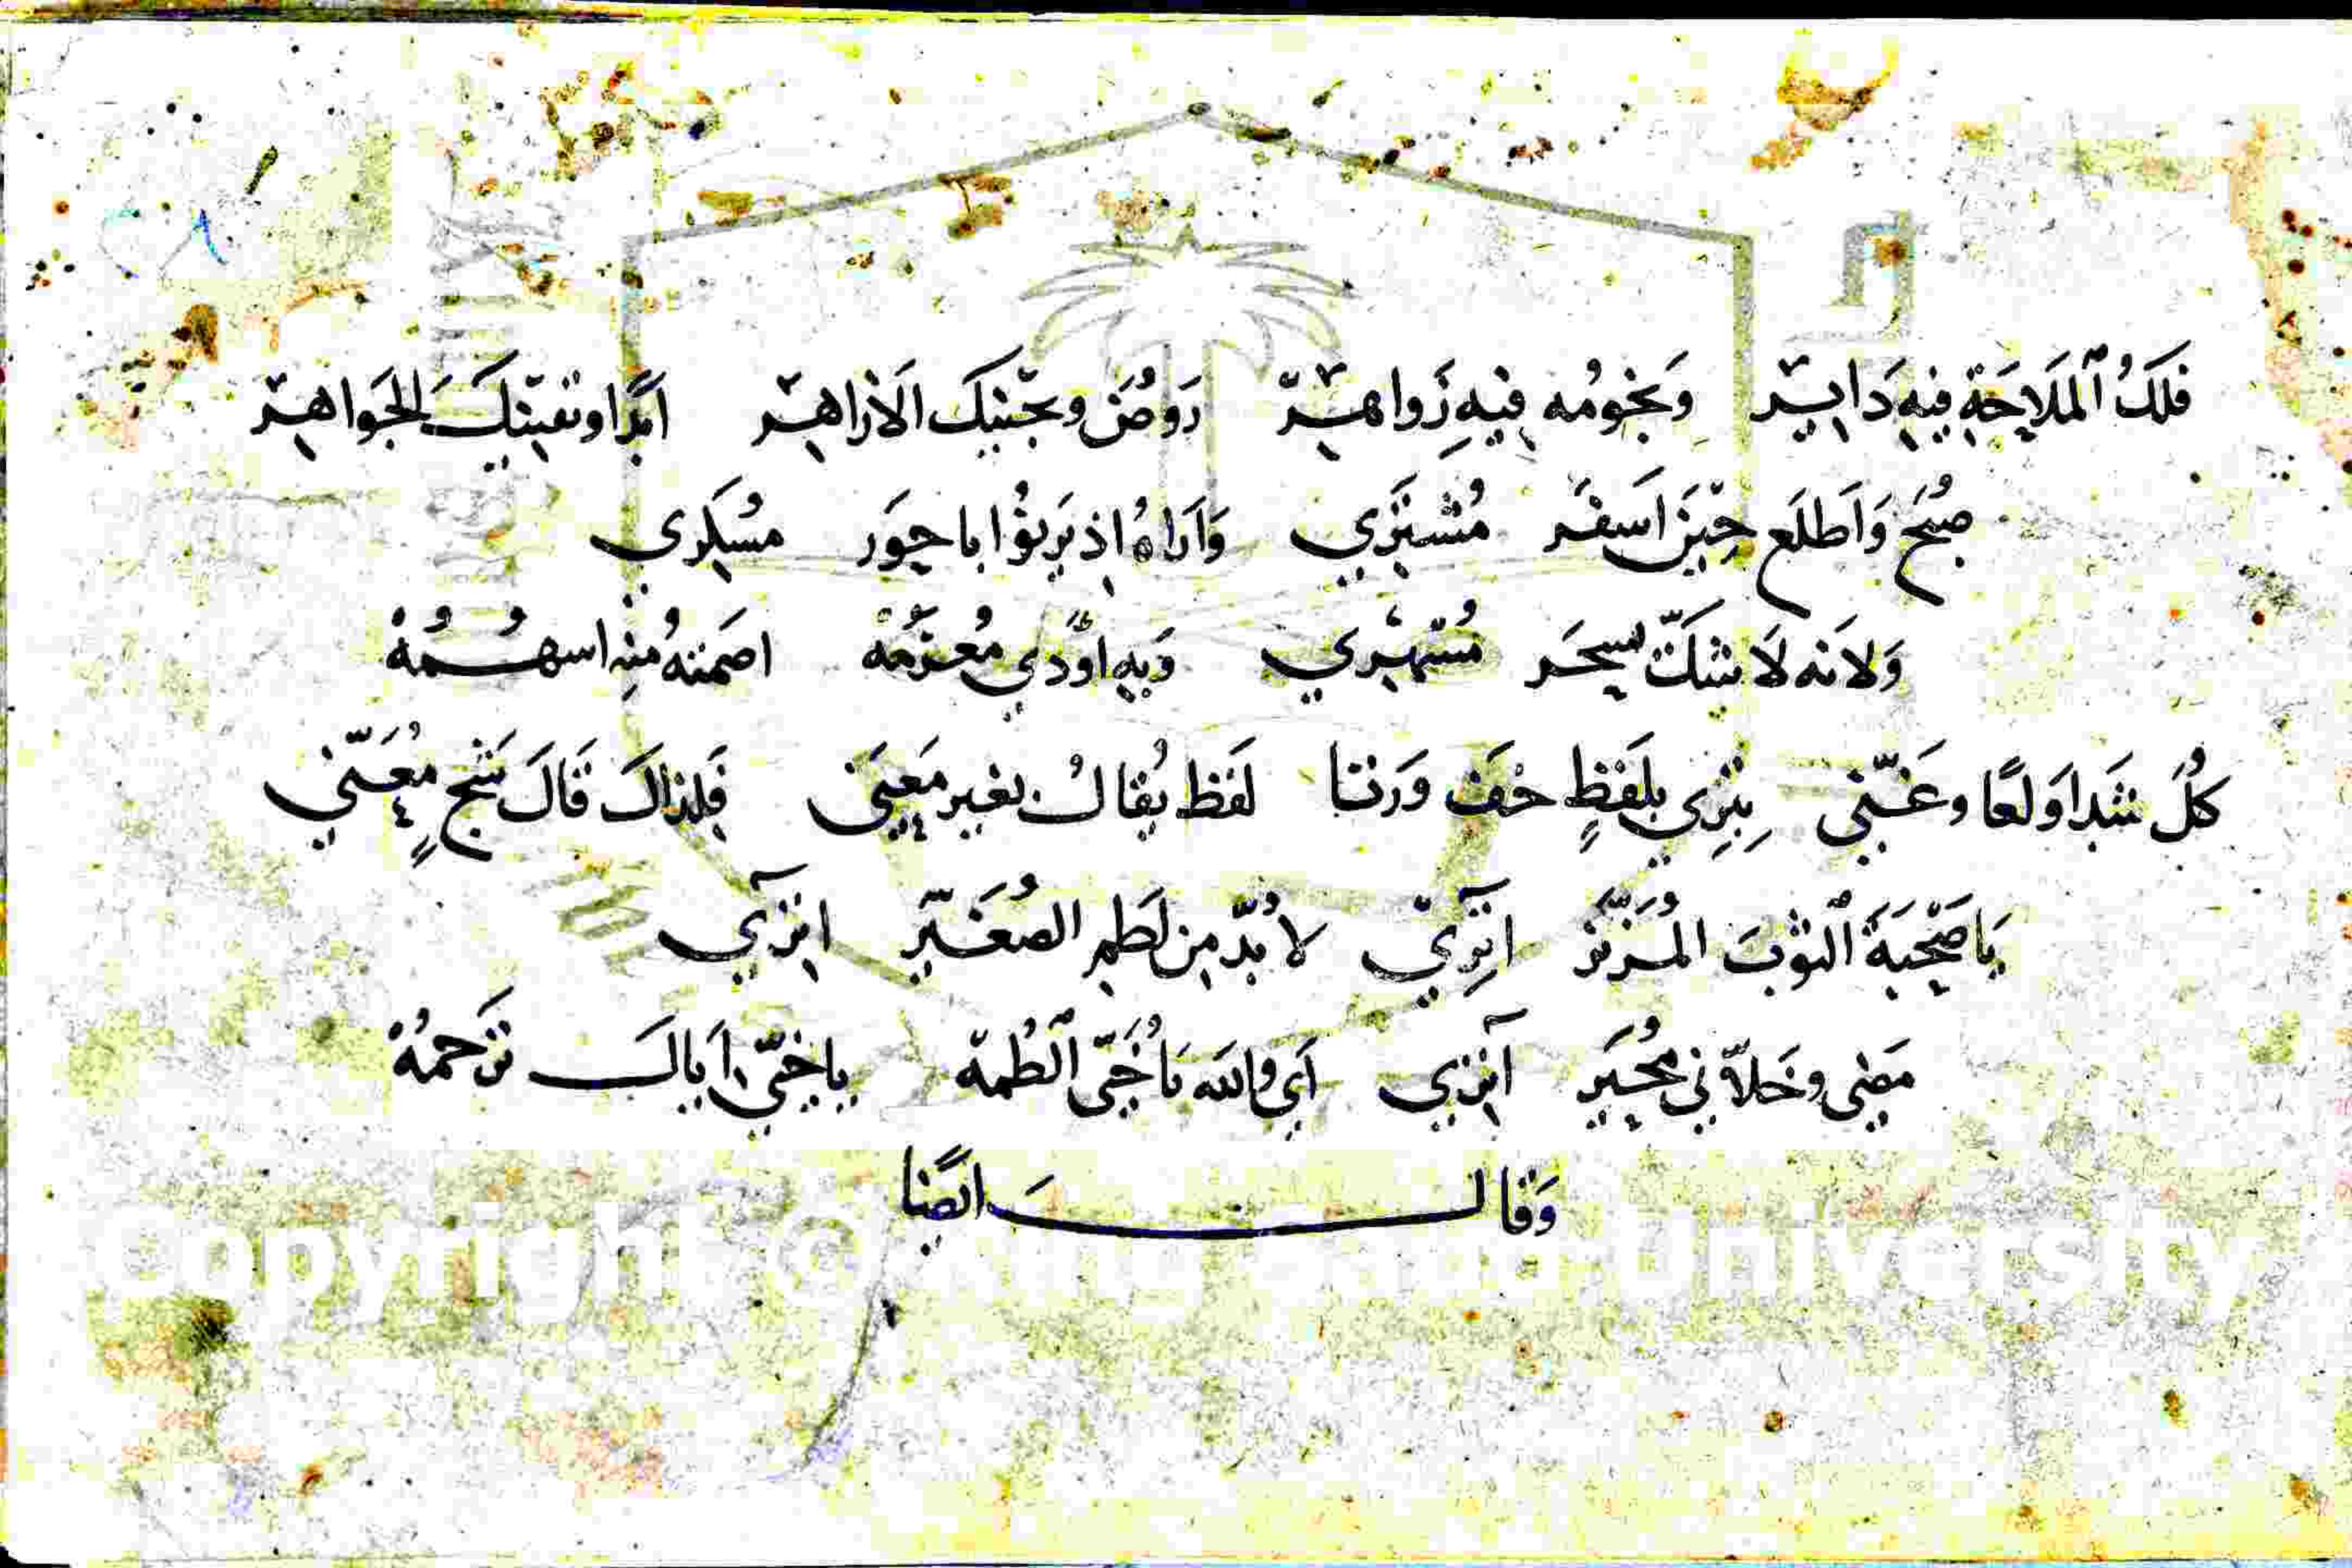 فَلَكُ ٱلمَلَاحَةِ فِيهِ دَايِر وَنُجُومُه فِيهِ زَواهِر رَوضُ وَيجنيكَ الاَزاهِر اَبدًا وتقينكَ الجَواهِر
صُبح وَاَطلَع حِينَ اَسفَر مُشتَرِي وَاَرَاهُ اِذ يَرنُوا باحِوَر مُسكِري
وَلانه لَا شكّ يسحَر مُشترِي وَبهِ اَودي مُغرَمُه اصمَتهُ مُنِه اسهُمُهْ
كُلّ شَدا وَلعًا وغَنّي بِتِرِي بِلَفظٍ خَفَ وَزنا لَفظ يُقالُ بغير مَعنَى فَلِذاكَ قَالَ شَجٍ مُعَنّي
يَا صَحْبَةَ ٱلثوبَ المُزَرّر اتِرِي لا بُدّ مِن لَطمِ الصُغَيّر اتِرِي
مَضى وخَلاّني مُحَير اَتِرِي اَي والله يَا خَُيّى ٱلطُمهْ ياخيّ اَيالَك تَرحمُهْ
وَقالَ ايضًا
Copyright © King Saud University